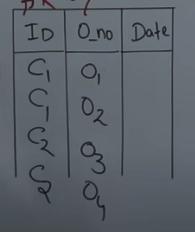 ID O_no Date
C1 O1
C1 O2
C2 O3
C2 O4